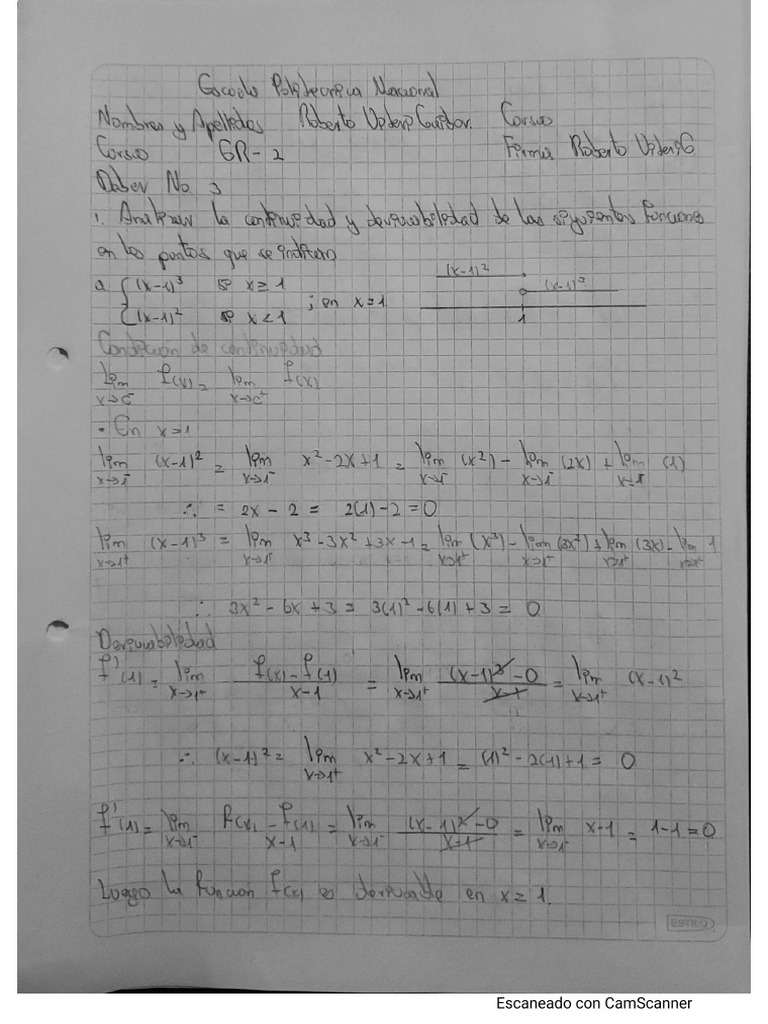 Escuela Politecnica Nacional
Nombres y Apellidos Roberto Curso
Curso GR-2 Firma Roberto
Deber No. 3
1. Analizar la continuidad y derivabilidad de las siguientes funciones
en los puntos que se indican
a { (x-1)³ si x ≥ 1
{ (x-1)² si x < 1 ; en x = 1
(x-1)² (x-1)³
1
Condición de continuidad
lim x→c⁻ f(x) = lim x→c⁺ f(x)
• En x = 1
lim x→1⁻ (x-1)² = lim x→1⁻ x² - 2x + 1 = lim x→1⁻ (x²) - lim x→1⁻ (2x) + lim x→1⁻ (1)
∴ = 2x - 2 = 2(1) - 2 = 0
lim x→1⁺ (x-1)³ = lim x→1⁺ x³ - 3x² + 3x - 1 = lim x→1⁺ (x³) - lim x→1⁺ (3x²) + lim x→1⁺ (3x) - lim x→1⁺ 1
∴ 3x² - 6x + 3 = 3(1)² - 6(1) + 3 = 0
Derivabilidad
f'(1) = lim x→1⁺ f(x) - f(1) / x - 1 = lim x→1⁺ (x-1)³ - 0 / x-1 = lim x→1⁺ (x-1)²
∴ (x-1)² = lim x→1⁺ x² - 2x + 1 = (1)² - 2(1) + 1 = 0
f'(1) = lim x→1⁻ f(x) - f(1) / x - 1 = lim x→1⁻ (x-1)² - 0 / x-1 = lim x→1⁻ x - 1 = 1 - 1 = 0
Luego la funcion f(x) es derivable en x = 1.
ESTILO
Escaneado con CamScanner